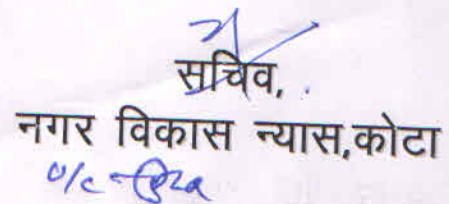 सचिव,
नगर विकास न्यास,कोटा
o/c